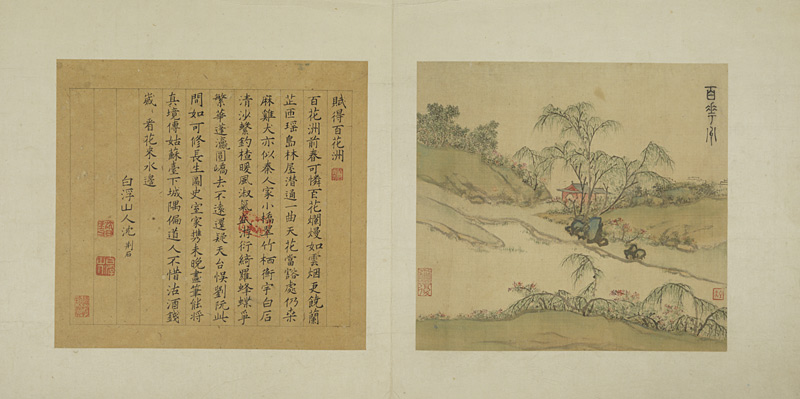 百花洲
賦得百花洲
百花洲前春可憐百花爛熳如雲烟更饒蘭
芷匝瑶島林屋潜通一曲天花當谿處仍桑
麻雞犬亦似秦人家小橋翠竹栖衡宇白石
清沙繫釣楂暖風淑氣
衍綺羅蜂蝶爭
繁華蓬瀛圓嶠去不遠還疑天台悮劉阮此
間如可修長生闔
室家携來晚畫筆能將
真境傳姑蘇臺下城隅偏道人不惜沽酒錢
歲歲看花来水邊
白浮山人沈